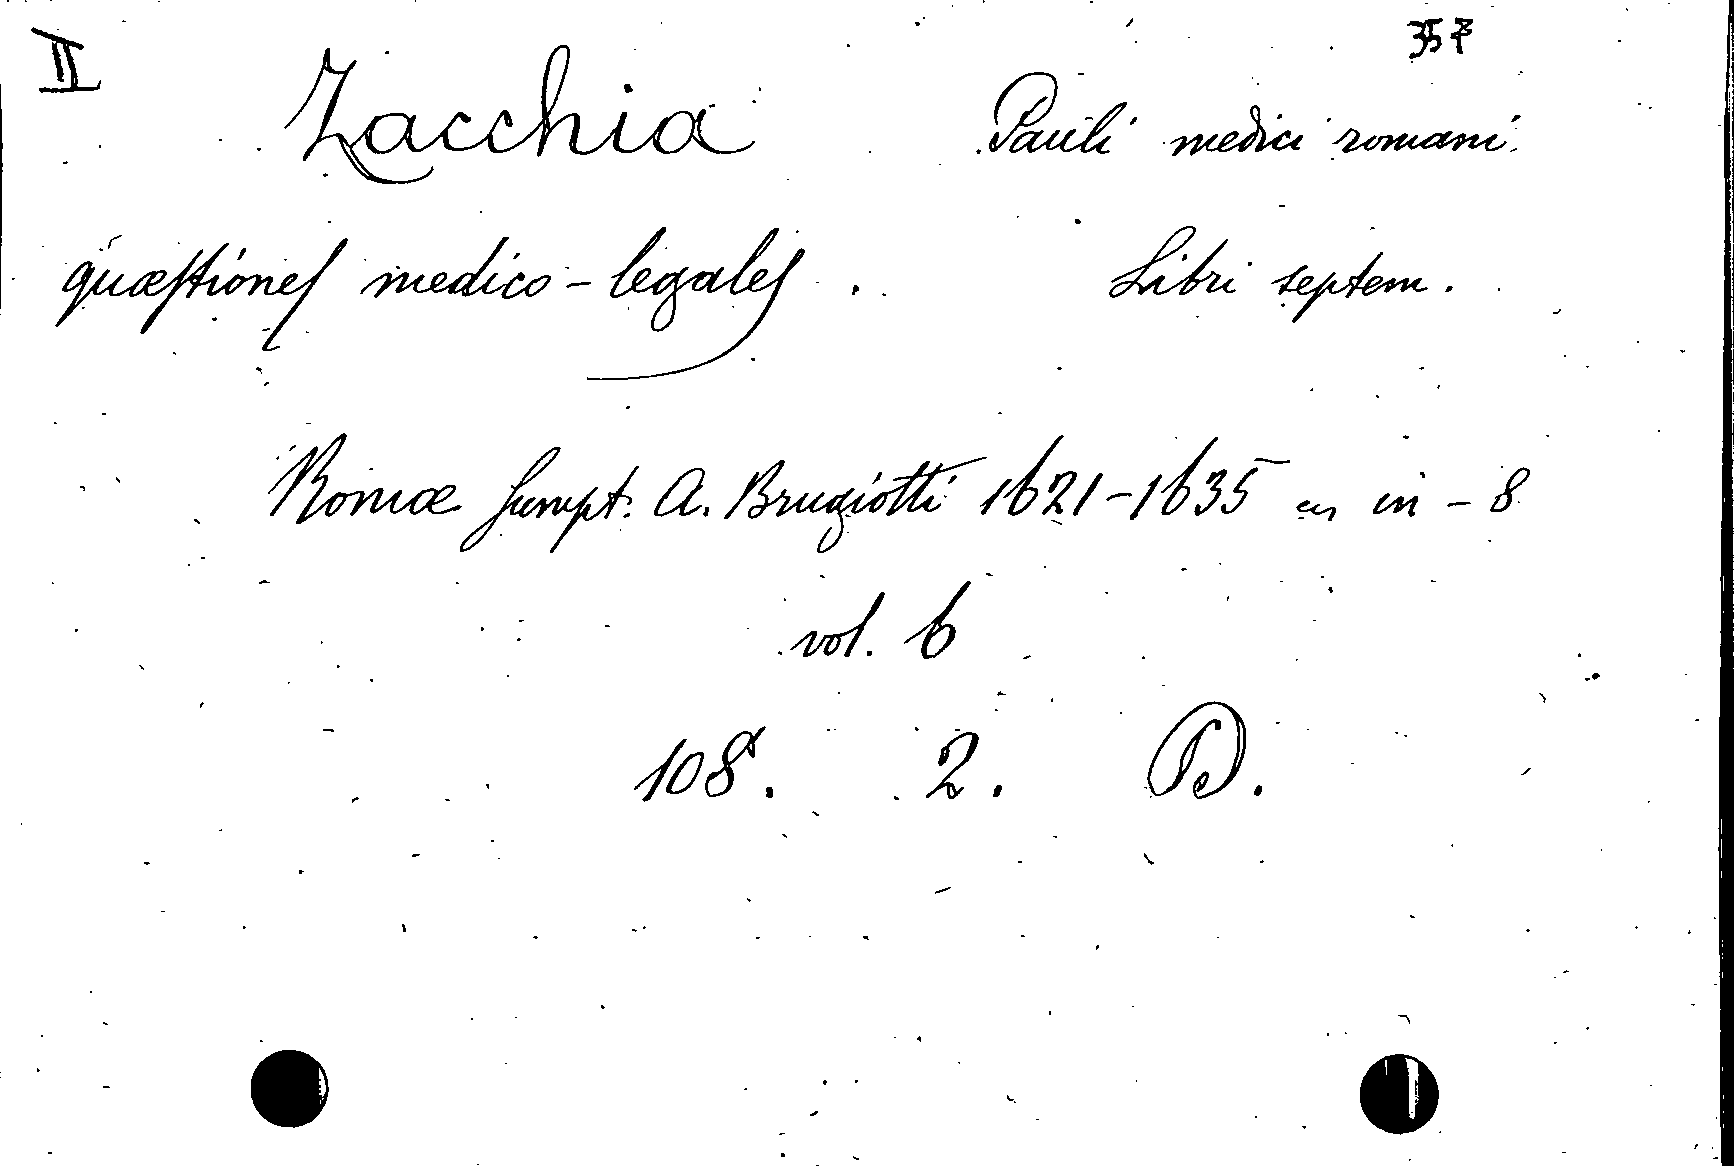 II 357
Zacchia Pauli medici romani
quæſtioneſ medico-legaleſ. Libri septem.
Romæ ſumpt. A. Brugiotti 1621-1635 in-8
vol. 6
108. 2. D.